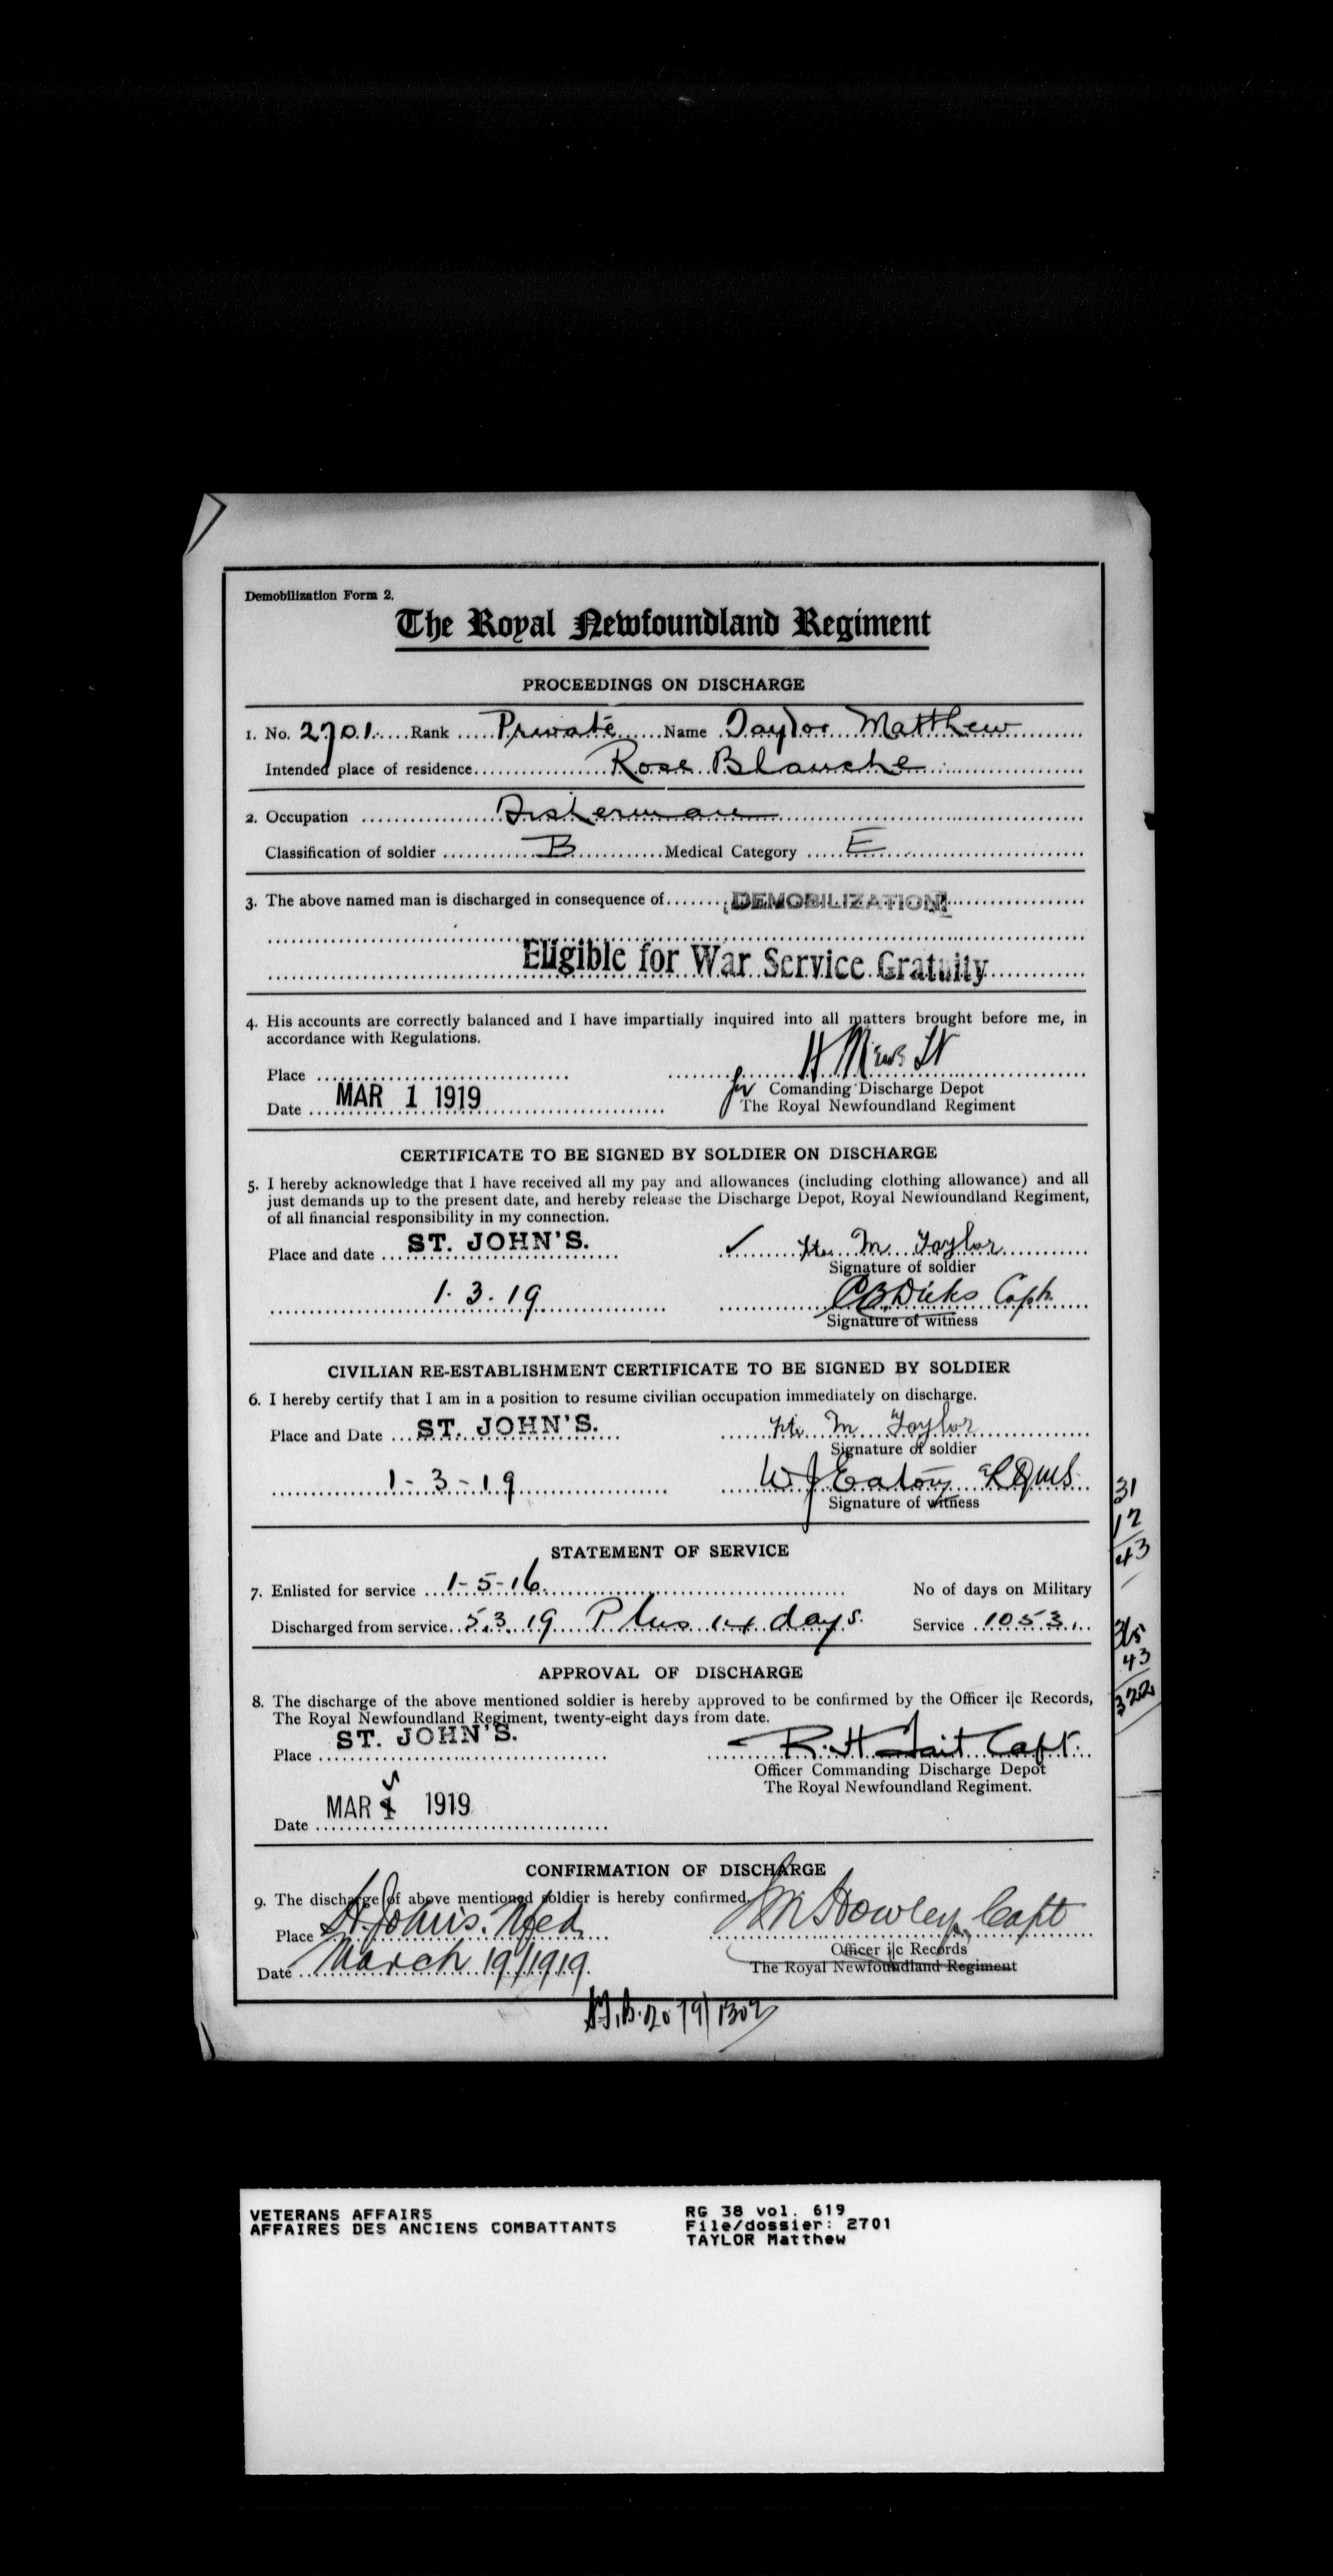 Demobilization Form 2.
The Royal Newfoundland Regiment
PROCEEDINGS ON DISCHARGE
1. No. 2701 Rank Private Name Taylor Matthew
Intended place of residence Rose Blanche
2. Occupation Fisherman
Classification of soldier B Medical Category E
3. The above named man is discharged in consequence of DEMOBILIZATION
Eligible for War Service Gratuity
4. His accounts are correctly balanced and I have impartially inquired into all matters brought before me, in
accordance with Regulations.
H Mews Lt
Place
for Comanding Discharge Depot
Date MAR 1 1919
The Royal Newfoundland Regiment
CERTIFICATE TO BE SIGNED BY SOLDIER ON DISCHARGE
5. I hereby acknowledge that I have received all my pay and allowances (including clothing allowance) and all
just demands up to the present date, and hereby release the Discharge Depot, Royal Newfoundland Regiment,
of all financial responsibility in my connection.
Place and date ST. JOHN'S. Pte M Taylor
Signature of soldier
1.3.19 Dicks Capt.
Signature of witness
CIVILIAN RE-ESTABLISHMENT CERTIFICATE TO BE SIGNED BY SOLDIER
6. I hereby certify that I am in a position to resume civilian occupation immediately on discharge.
Place and Date ST. JOHN'S. Pte M Taylor
Signature of soldier
1-3-19 W J Eaton
Signature of witness
31
12
43
STATEMENT OF SERVICE
7. Enlisted for service 1-5-16 No of days on Military
Discharged from service 5.3.19 Plus 14 days. Service 1053
43
322
APPROVAL OF DISCHARGE
8. The discharge of the above mentioned soldier is hereby approved to be confirmed by the Officer i|c Records,
The Royal Newfoundland Regiment, twenty-eight days from date.
Place ST. JOHN'S. R. H Tait Capt.
Officer Commanding Discharge Depot
The Royal Newfoundland Regiment.
Date MAR 5 1919
CONFIRMATION OF DISCHARGE
9. The discharge of above mentioned soldier is hereby confirmed.
Place St. John's. Nfld Howley Capt
Officer i|c Records
Date March 19/1919 The Royal Newfoundland Regiment
VETERANS AFFAIRS
AFFAIRES DES ANCIENS COMBATTANTS
RG 38 vol. 619
File/dossier: 2701
TAYLOR Matthew